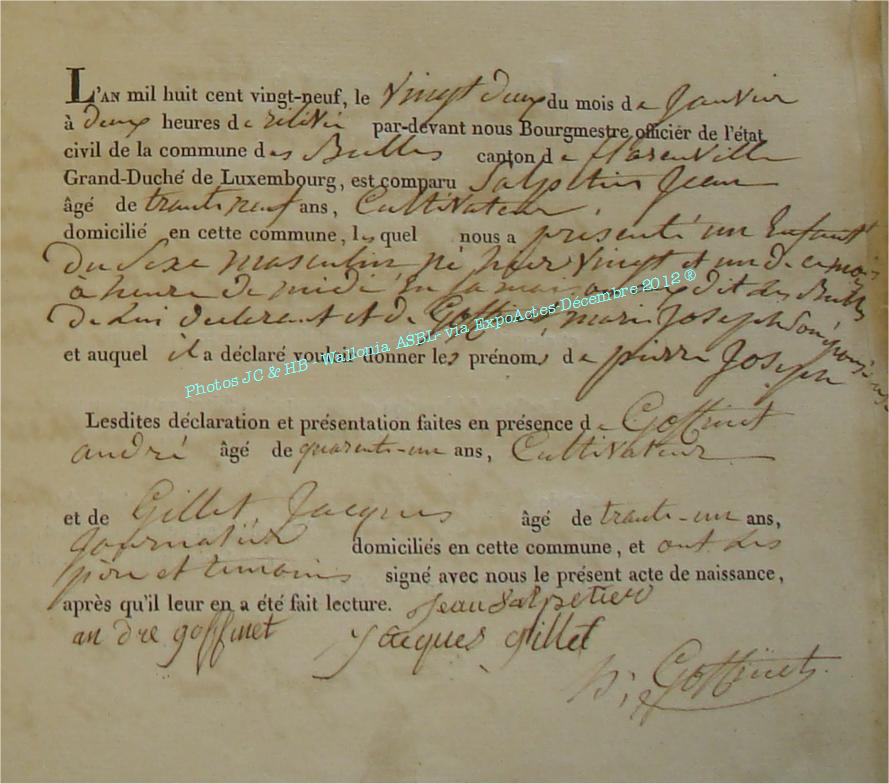 L'AN mil huit cent vingt-neuf, le vingt deux du mois de Janvier
à deux heures de relevée par-devant nous Bourgmestre officiér de l'état
civil de la commune des Bulles canton de florenville
Grand-Duché de Luxembourg, est comparu Salpetier Jean
âgé de trante neuf ans, Cultivateur,
domicilié en cette commune, lesquel nous a présenté un Enfant
du Sexe masculin né hier vingt et un de ce mois
a heure de midi en sa maison dit des Bulles
de Lui declarant et de Goffinet, marie Joseph Son épouse
et auquel il a déclaré vouloir donner les prénoms de pierre Joseph
Photos JC & HB - Wallonia ASBL- via ExpoActes-Décembre 2012 ®
Lesdites déclaration et présentation faites en présence de Goffinet
andré âgé de quarente-un ans, Cultivateur
et de Gillet, Jacques âgé de trante-un ans,
Journalier domiciliés en cette commune, et ont les
père et temoins signé avec nous le présent acte de naissance,
après qu'il leur en a été fait lecture. Jean Salpetier
an dre goffinet Jacques gillet
Goffinet